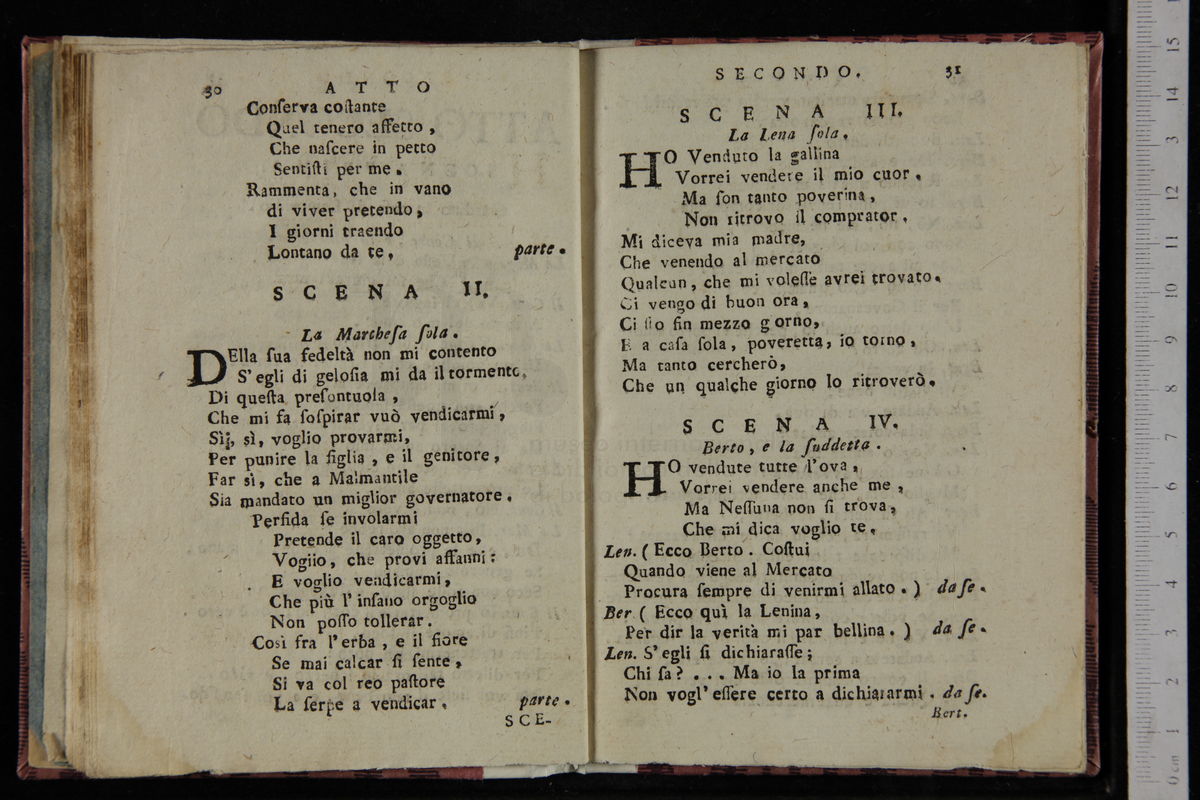 30 ATTO
Conſerva coſtante
Quel tenero affetto ,
Che naſcere in petto
Sentiſti per me .
Rammenta, che in vano
di viver pretendo,
I giorni traendo
Lontano da te, parte .
SCENA II.
La Marcheſa ſola .
DElla ſua fedeltà non mi contento
S' egli di geloſia mi da il tormento,
Di queſta preſontuoſa ,
Che mi fa ſoſpirar vuò vendicarmi,
Sì, sì, voglio provarmi,
Per punire la figlia , e il genitore,
Far sì, che a Malmantile
Sia mandato un miglior governatore .
Perfida ſe involarmi
Pretende il caro oggetto,
Vogiio, che provi affanni:
E voglio vendicarmi,
Che più l' inſano orgoglio
Non poſſo tollerar.
Così fra l'erba , e il fiore
Se mai calcar ſi ſente,
Si va col reo paſtore
La ſerpe a vendicar. parte .
SCE-
SECONDO. 31
SCENA III.
La Lena ſola.
HO Venduto la gallina
Vorrei vendere il mio cuor.
Ma ſon tanto poverina,
Non ritrovo il comprator.
Mi diceva mia madre,
Che venendo al mercato
Qualcun, che mi voleſſe avrei trovato.
Ci vengo di buon ora,
Ci ſto fin mezzo g orno,
E a caſa ſola, poveretta, io torno,
Ma tanto cercherò,
Che un qualche giorno lo ritroverò.
SCENA IV.
Berto, e la ſuddetta .
HO vendute tutte l'ova,
Vorrei vendere anche me ,
Ma Neſſuna non ſi trova,
Che mi dica voglio te.
Len. ( Ecco Berto . Coſtui
Quando viene al Mercato
Procura ſempre di venirmi allato . ) da ſe .
Ber ( Ecco quì la Lenina,
Per dir la verità mi par bellina. ) da ſe.
Len. S' egli ſi dichiaraſſe;
Chi ſa? ... Ma io la prima
Non vogl' eſſere certo a dichiararmi . da ſe.
Bert.